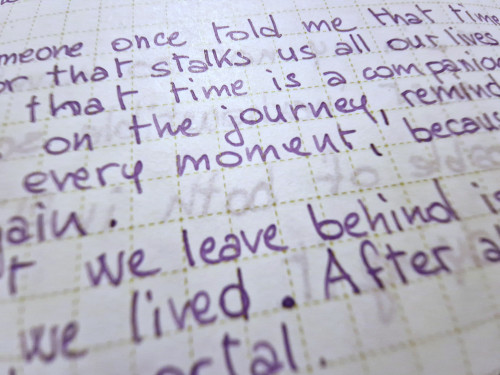 meone once told me that time
or that stalks us all our lives
that time is a companion
on the journey, remind
every moment, becaus
gain.
t we leave behind is
we lived. After a
ortal.